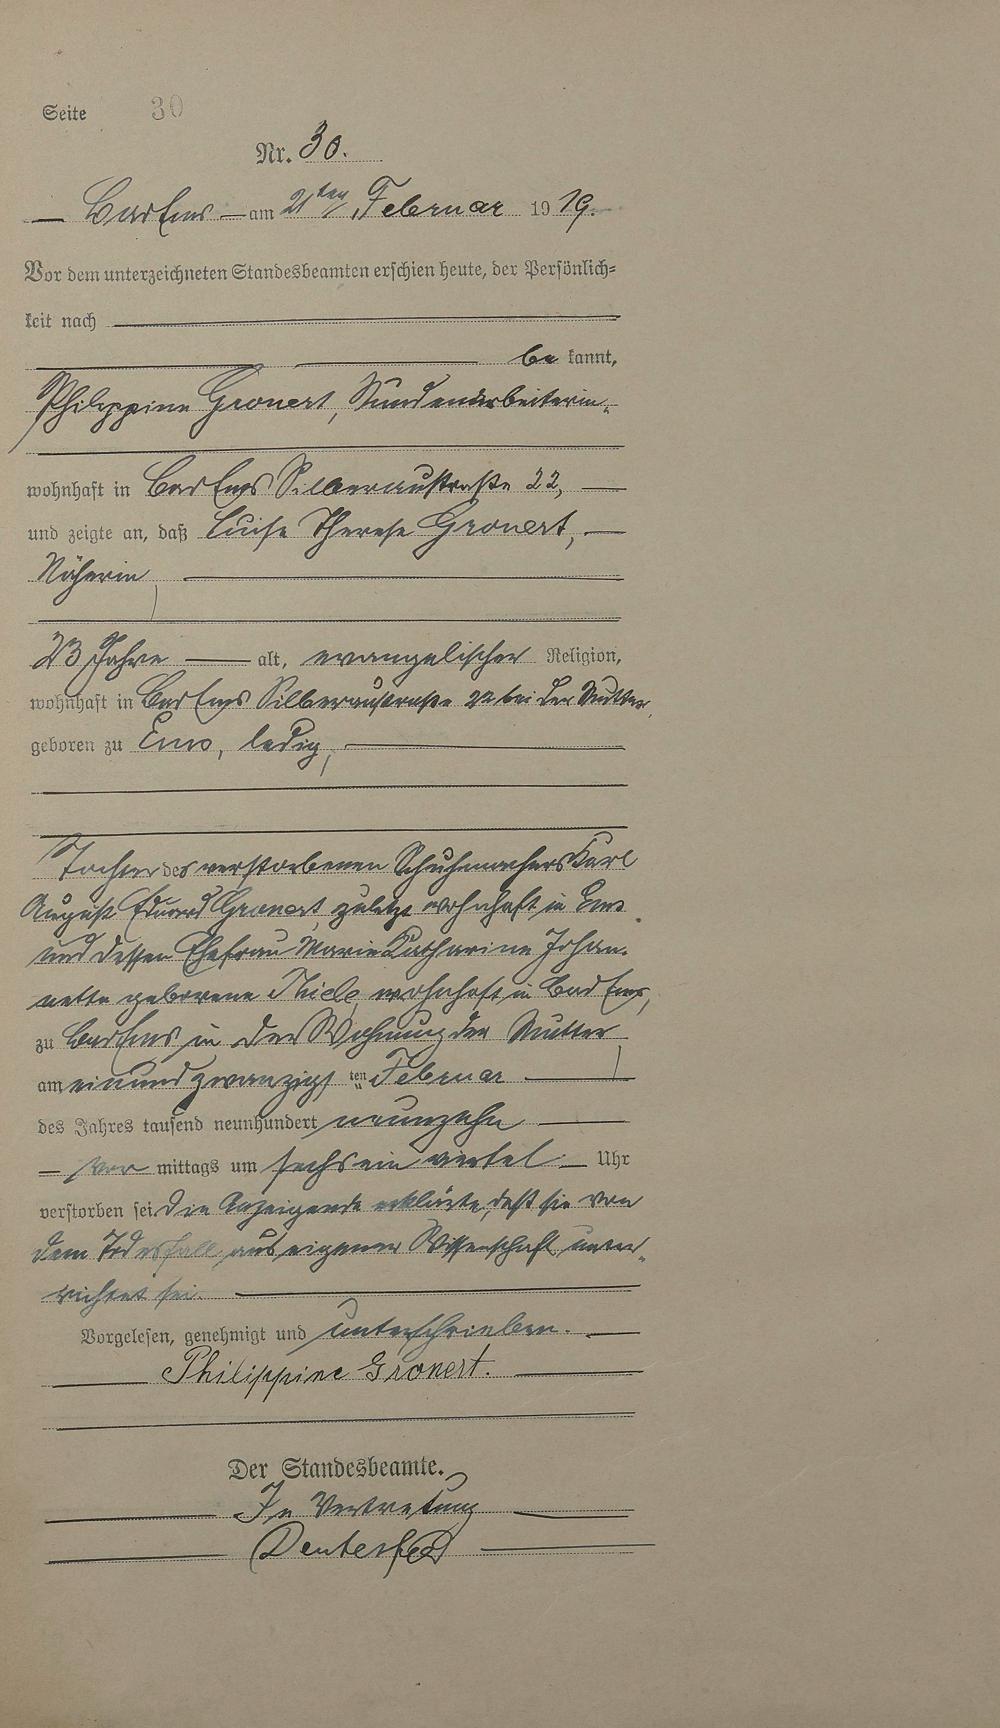 Seite 30
Nr. 30.
Bad Ems am 21ten Februar 1919.
Vor dem unterzeichneten Standesbeamten erschien heute, der Persönlich-
keit nach
be kannt,
Philippine Gronert, Stundenarbeiterin,
wohnhaft in Bad Ems Silberaustraße 22,
und zeigte an, daß Luise Therese Gronert,
Näherin,
23 Jahre alt, evangelischer Religion,
wohnhaft in Bad Ems Silberaustraße 22 bei der Mutter,
geboren zu Ems, ledig,
Tochter des verstorbenen Schuhmachers Karl
August Eduard Gronert, zuletzt wohnhaft in Ems
und dessen Ehefrau Marie Katharine Johan-
nette geborene Thiele, wohnhaft in Bad Ems,
zu Bad Ems in der Wohnung der Mutter
am einundzwanzigsten Februar
des Jahres tausend neunhundert neunzehn
vor mittags um sechs ein viertel Uhr
verstorben sei. Die Anzeigende erklärte, daß sie von
dem Todesfall aus eigener Wissenschaft unter-
richtet sei.
Vorgelesen, genehmigt und unterschrieben.
Philippine Gronert.
Der Standesbeamte.
In Vertretung